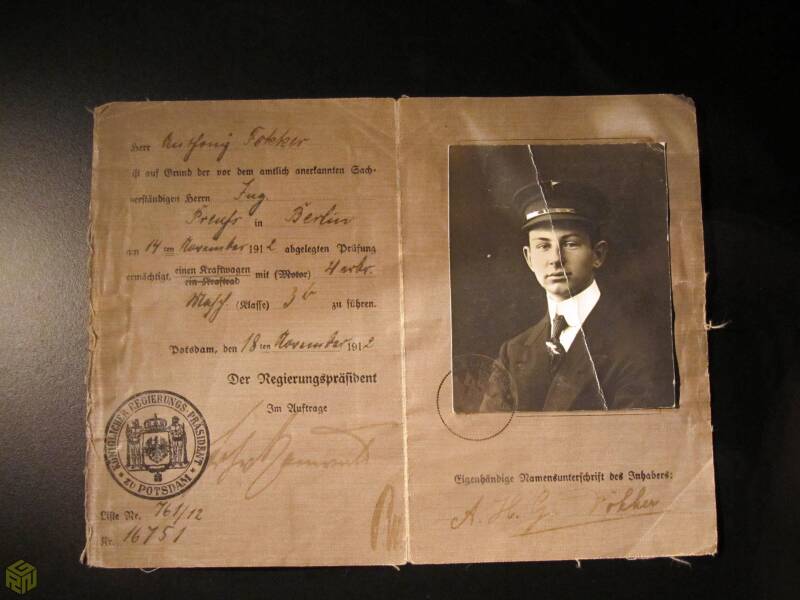 Herr Anthony Fokker
ist auf Grund der vor dem amtlich anerkannten Sach-
verständigen Herrn Ing.
Preuss in Berlin
am 14 ten November 1912 abgelegten Prüfung
ermächtigt, einen Kraftwagen mit (Motor) 4
ein Kraftrad
Masch. (Klasse) 3b zu führen.
Potsdam, den 18 ten November 1912
Der Regierungspräsident
Im Auftrage
KÖNIGLICHER REGIERUNGS-PRÄSIDENT
* ZU POTSDAM *
Liste Nr. 761/12
Nr. 16751
Eigenhändige Namensunterschrift des Inhabers:
A. H. G. Fokker